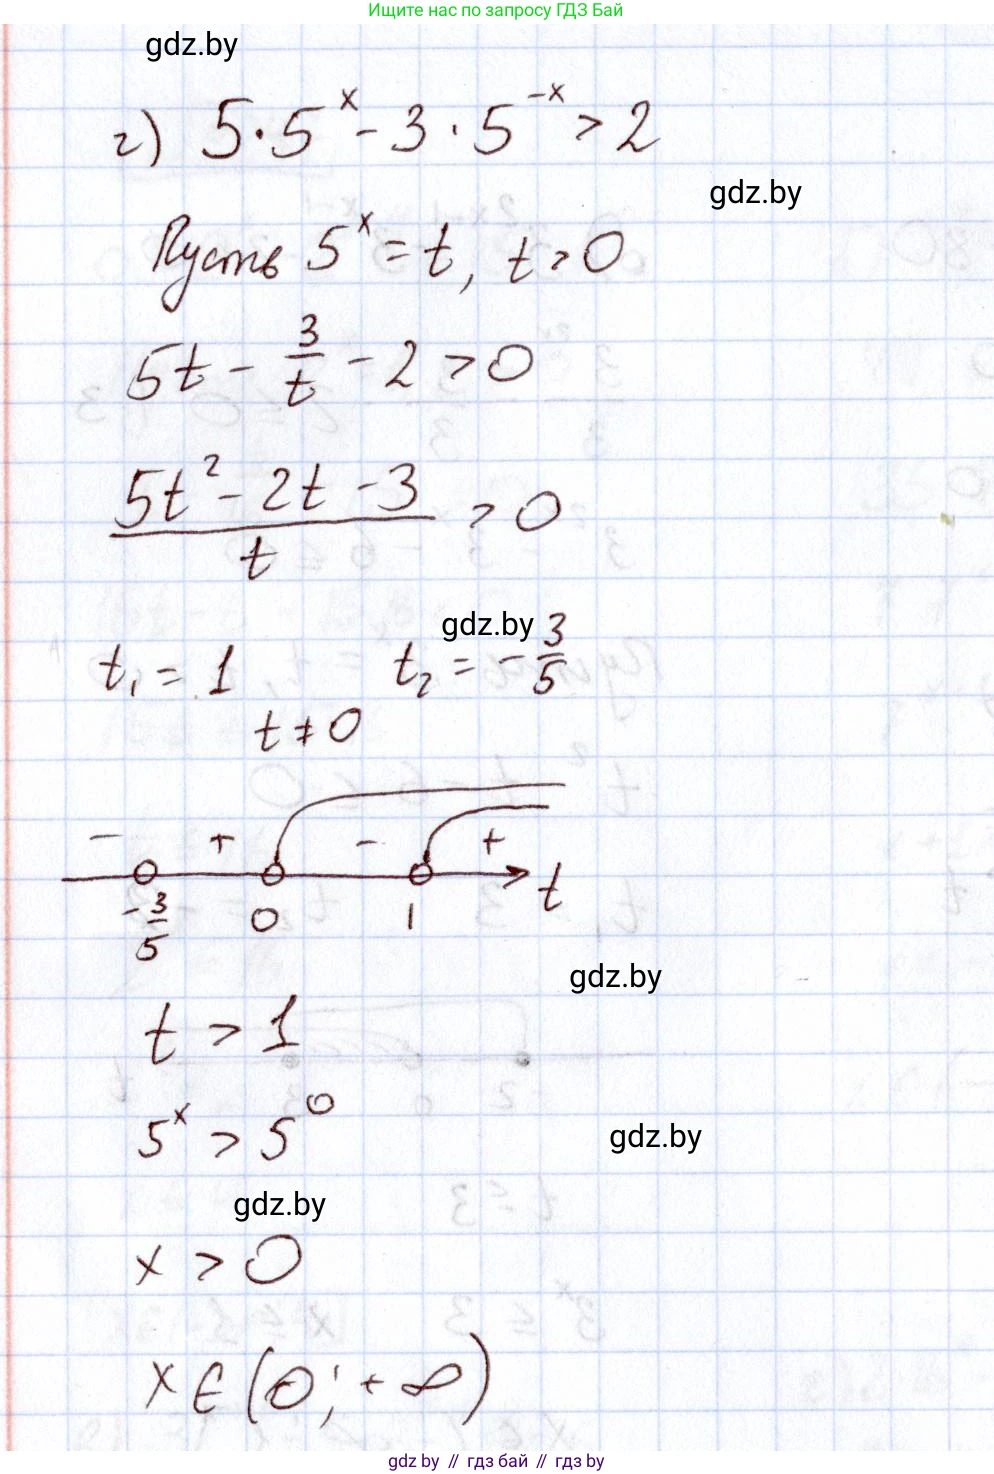 Ищите нас по запросу ГДЗ Бай
gdz.by
г) 5·5^x - 3·5^-x > 2
gdz.by
Пусть 5^x = t, t > 0
5t - 3/t - 2 > 0
(5t² - 2t - 3)/t > 0
gdz.by
t₁ = 1 t₂ = -3/5
t ≠ 0
- + - +
-3/5 0 1 t
gdz.by
t > 1
5^x > 5^0
gdz.by
gdz.by
x > 0
x ∈ (0; +∞)
gdz.by // гдз бай // gdz.by